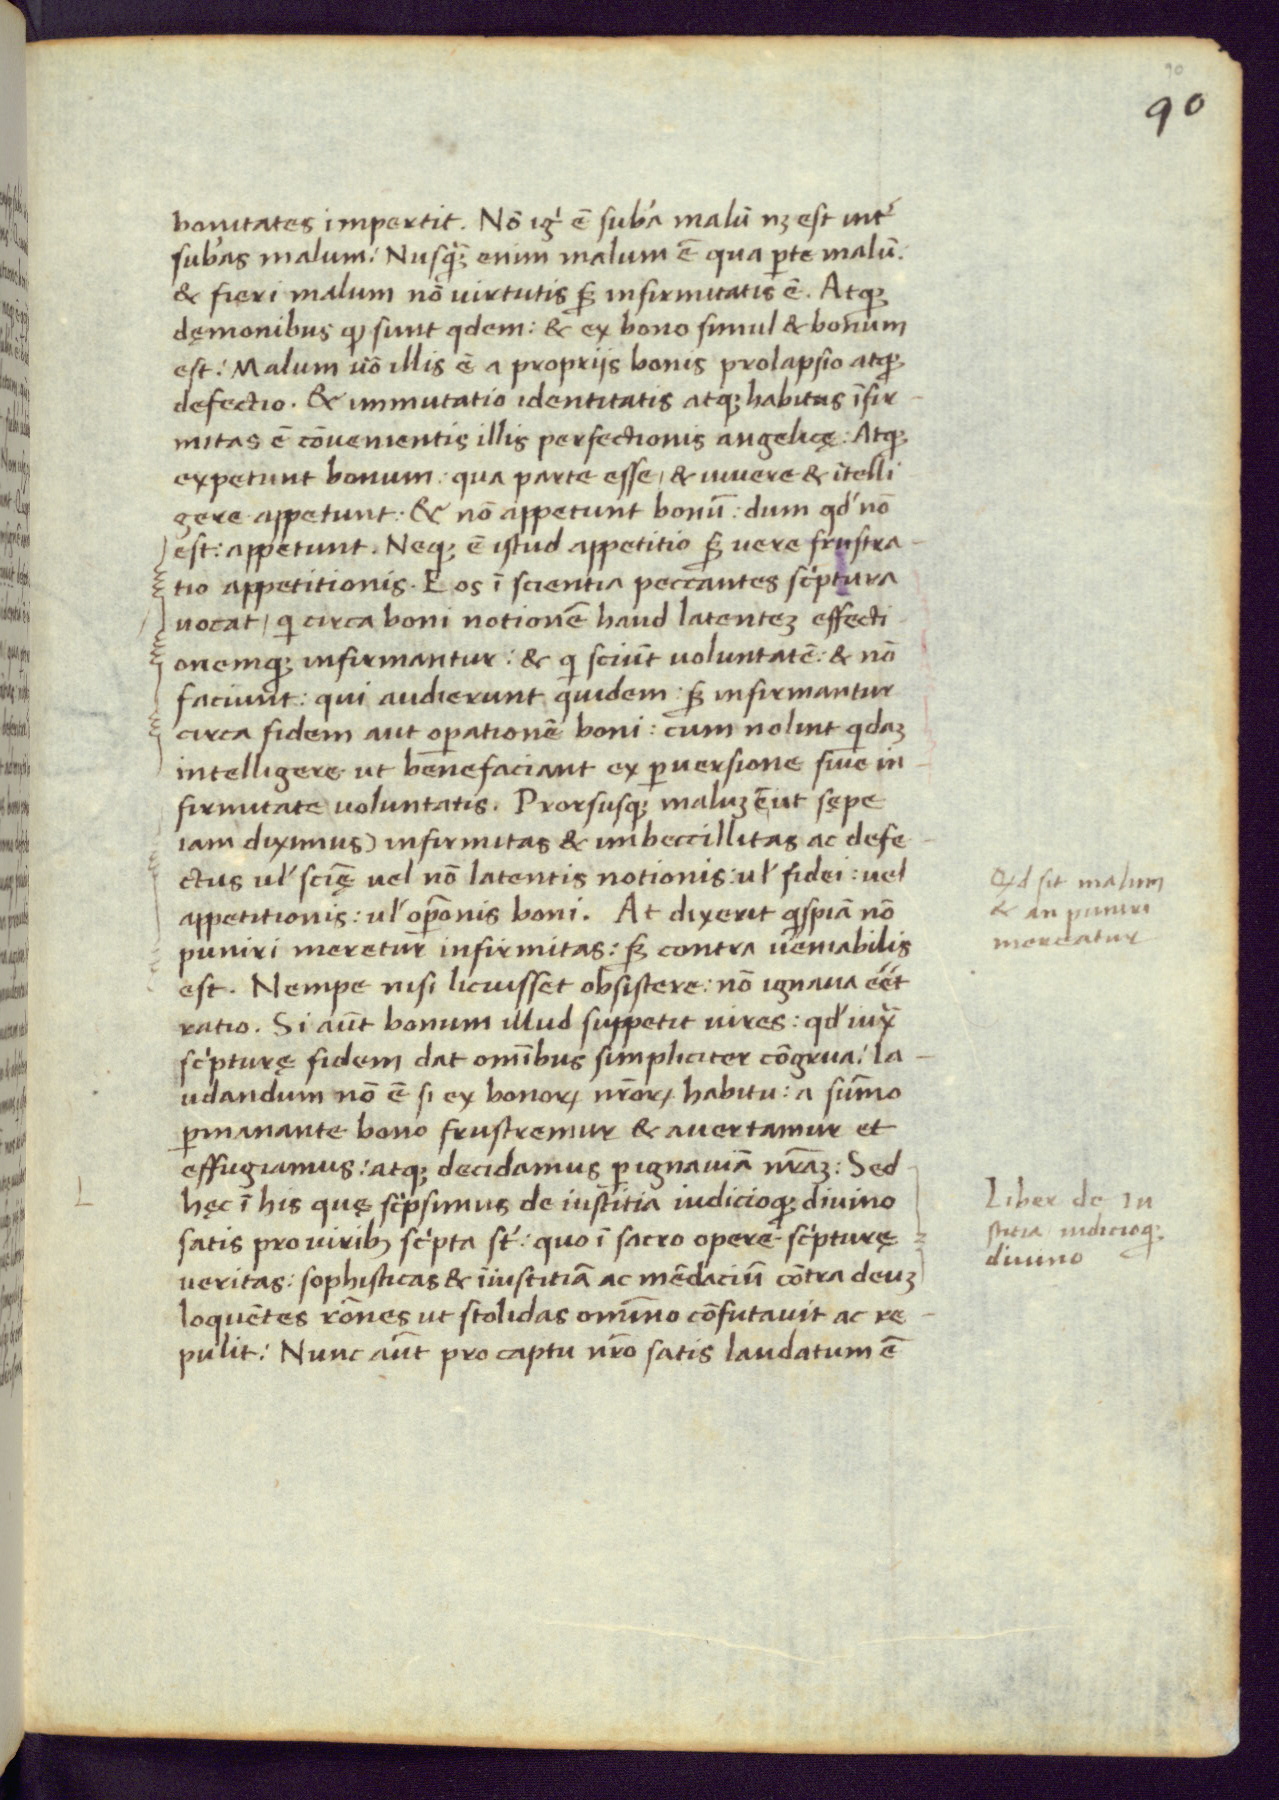 90
90
bonitates impertit. Nō igr̃ ē subã malū nꝫ est int̃
subãs malum: Nusꝗ̄ꝫ enim malum ē qua ꝑte malū:
& fieri malum nō virtutis sꝫ infirmitatis ē. Atqꝫ
dęmonibus ꝙ sunt qdem: & ex bono simul & bonum
est: Malum ūo illis ē a proprijs bonis prolapsio atqꝫ
defectio. & immutatio identitatis atqꝫ habitus īfir-
mitas ē cōvenientis illis perfectionis angelicę: Atqꝫ
expetunt bonum: qua parte esse, & vivere & ītelli
gere appetunt. & nō appetunt bonū: dum qd' nō
est: appetunt. Neqꝫ ē istud appetitio sꝫ vere frustra-
tio appetitionis. Eos ī scientia peccantes sc'ptura
vocat, qi circa boni notionē haud latenteꝫ effecti-
onemqꝫ infirmantur: & qi sciūt voluntatē: & nō
faciunt: qui audierunt quidem: sꝫ infirmantur
circa fidem aut oꝑationē boni: cum nolint qidaꝫ
intelligere ut benefaciant ex ꝑversione sive in-
firmitate voluntatis. Prorsusqꝫ maluꝫ ē (ut sępe
iam diximus) infirmitas & imbeccillitas ac defe-
ctus ul' scię̄ vel nō latentis notionis: ul' fidei: vel
appetitionis: ul' oꝑōnis boni. At dixerit qispiā nō
puniri meretur infirmitas: sꝫ contra veniabilis
est. Nempe nisi licuisset obsistere: nō ignava eēt
ratio. Si aūt bonum illud suppetit vires: qd' iux̄
sc'pturę fidem dat omībus simpliciter cōgrua: la-
udandum nō ē si ex bonoꝝ nr̄oꝝ habitu: a sūmo
ꝑmanante bono frustremur & avertamur et
effugiamus: atqꝫ decidamus ꝑ ignaviā nr̄aꝫ: Sed
hęc ī his quę sc'psimus de iustitia iudicioqꝫ divino
satis pro viribꝫ sc'pta st̄: quo ī sacro opere sc'pturę
veritas: sophisticas & īiustitiā ac mēdaciū cōtra deuꝫ
loquētes rōnes ut stolidas omīno cōfutavit ac re-
pulit: Nunc aūt pro captu nr̄o satis laudatum ē
Qd sit malum
& an puniri
mereatur
Liber de Iu
stitia iudicioqꝫ
divino